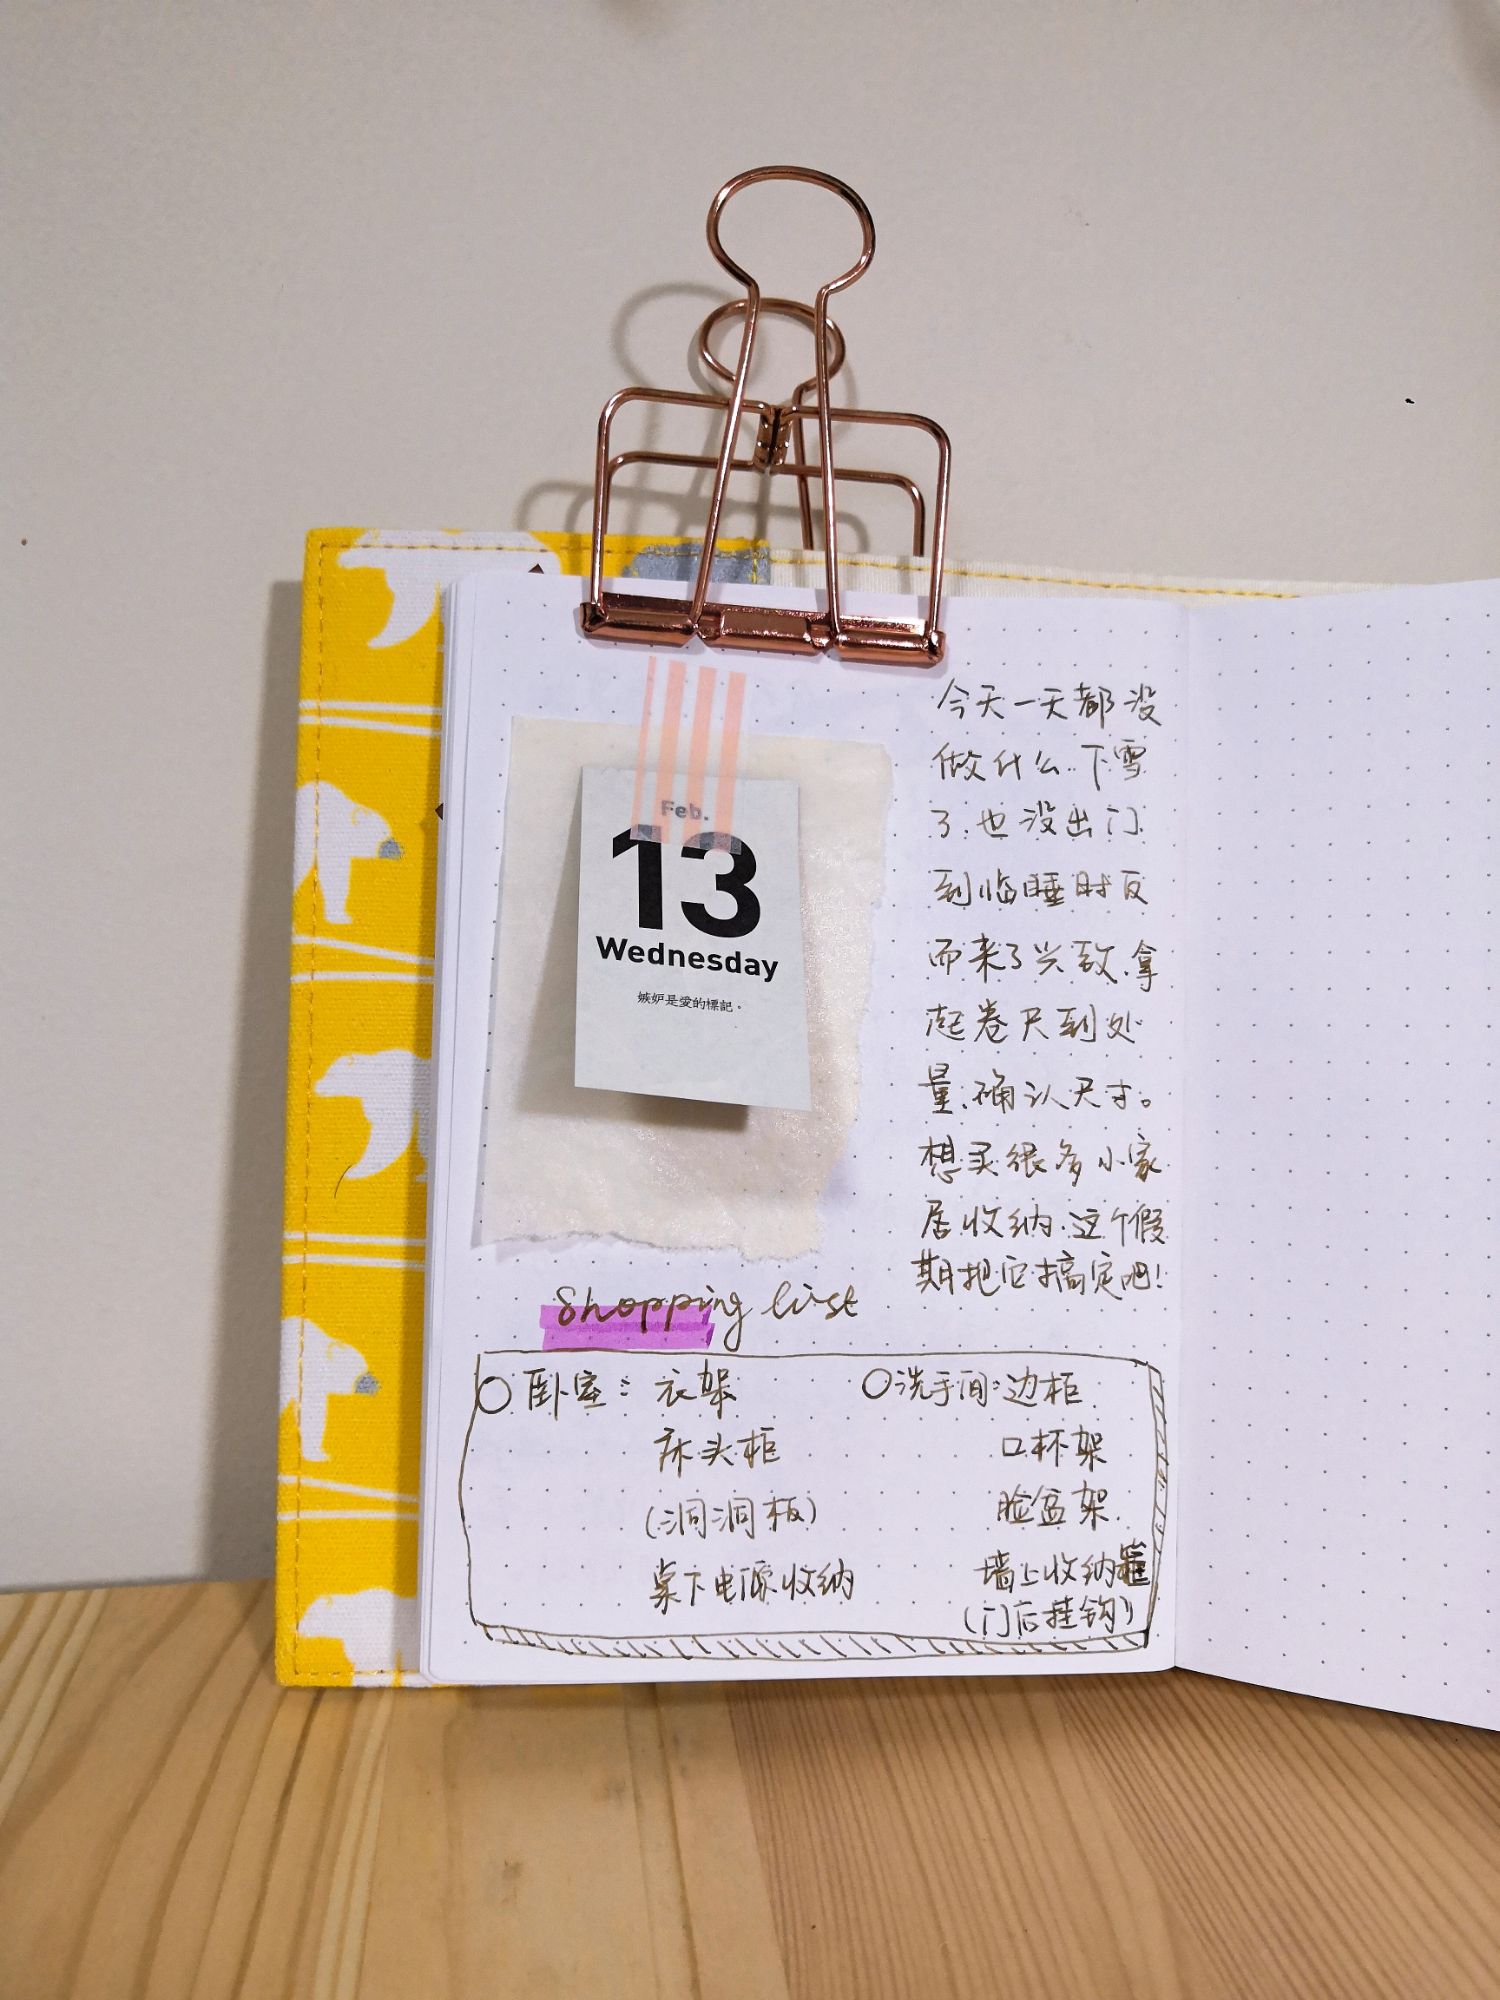 Feb.
13
Wednesday
嫉妒是愛的標記。
今天一天都没
做什么.下雪
了.也没出门.
到临睡时反
而来了兴致.拿
起卷尺到处
量.确认尺寸。
想买很多小家
居收纳.这个假
期把它搞定吧!
Shopping list
○卧室: 衣架
床头柜
(洞洞板)
桌下电源收纳
○洗手间:边柜
口杯架
脸盆架
墙上收纳
(门后挂钩)